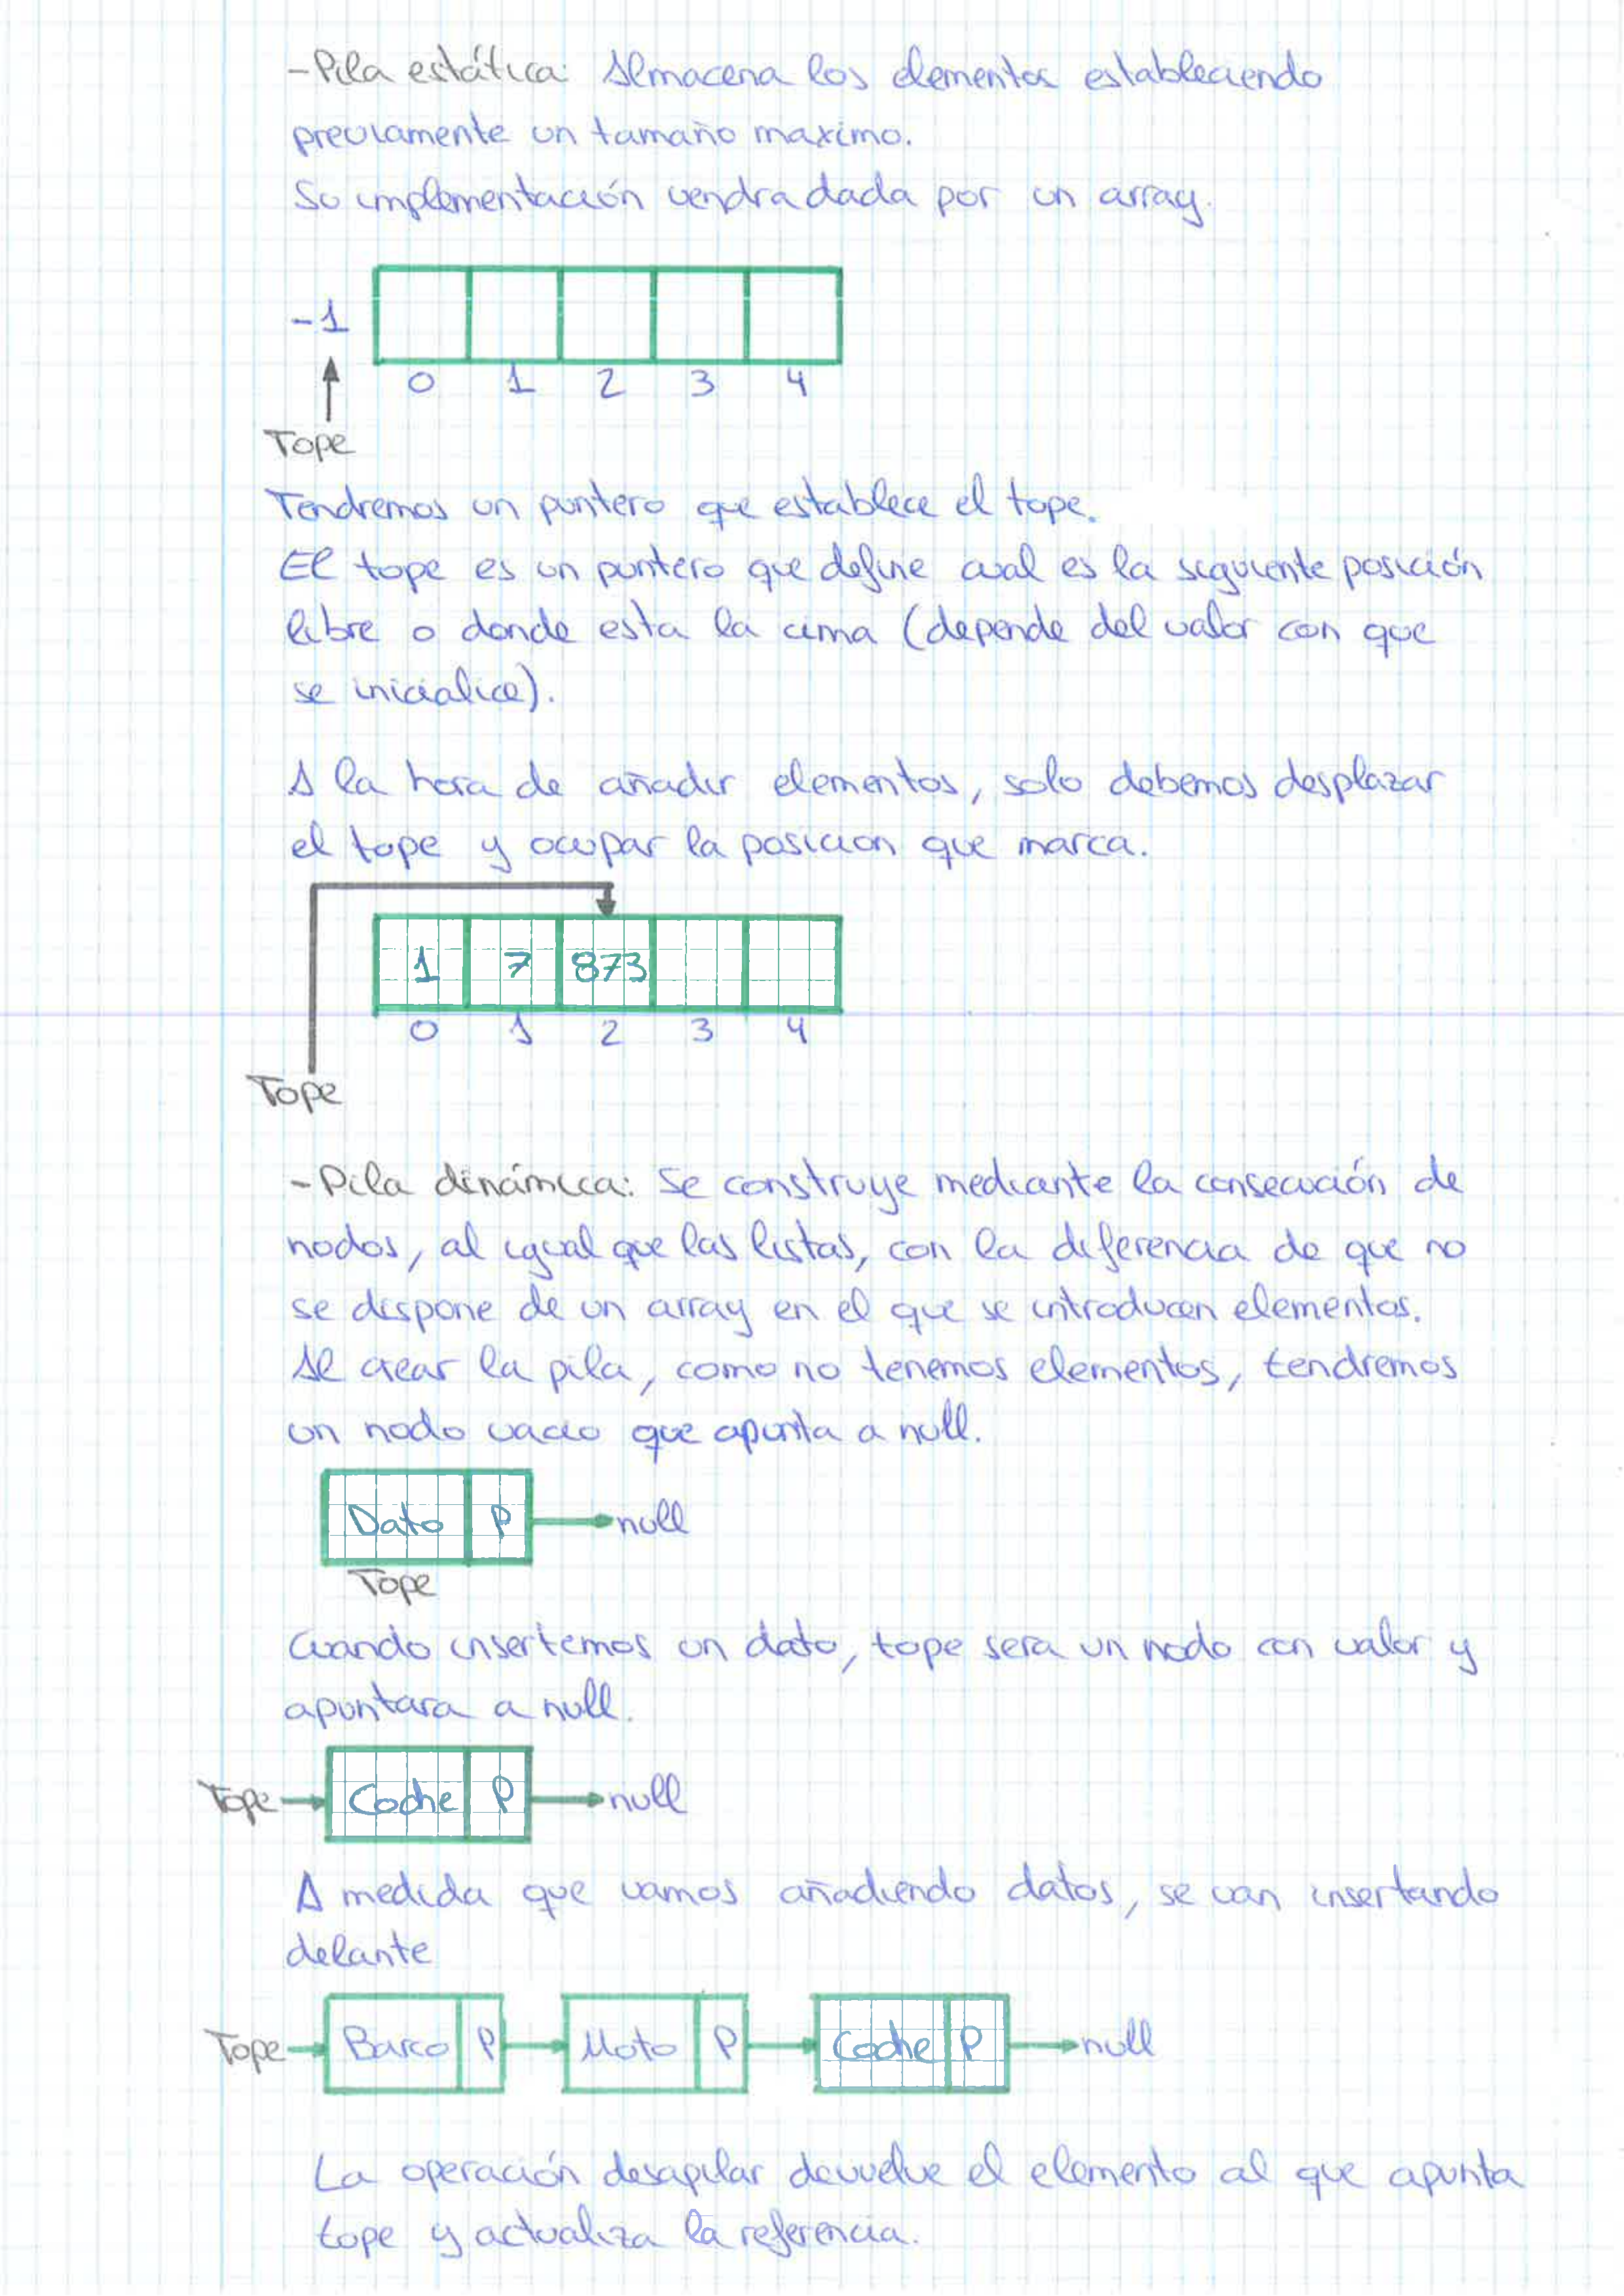 -Pila estática: Almacena los elementos estableciendo
previamente un tamaño maximo.
Su implementación vendra dada por un array.
-1
0 1 2 3 4
Tope
Tendremos un puntero que establece el tope.
El tope es un puntero que define cual es la siguiente posición
libre o donde esta la cima (depende del valor con que
se inicialice).
A la hora de añadir elementos, solo debemos desplazar
el tope y ocupar la posicion que marca.
1 7 873
0 1 2 3 4
Tope
-Pila dinámica: Se construye mediante la consecución de
nodos, al igual que las listas, con la diferencia de que no
se dispone de un array en el que se introducen elementos.
Al crear la pila, como no tenemos elementos, tendremos
un nodo vacio que apunta a null.
Dato P null
Tope
Cuando insertemos un dato, tope sera un nodo con valor y
apuntara a null.
Tope Coche P null
A medida que vamos añadiendo datos, se van insertando
delante
Tope Barco P Moto P Coche P null
La operación desapilar devuelve el elemento al que apunta
tope y actualiza la referencia.